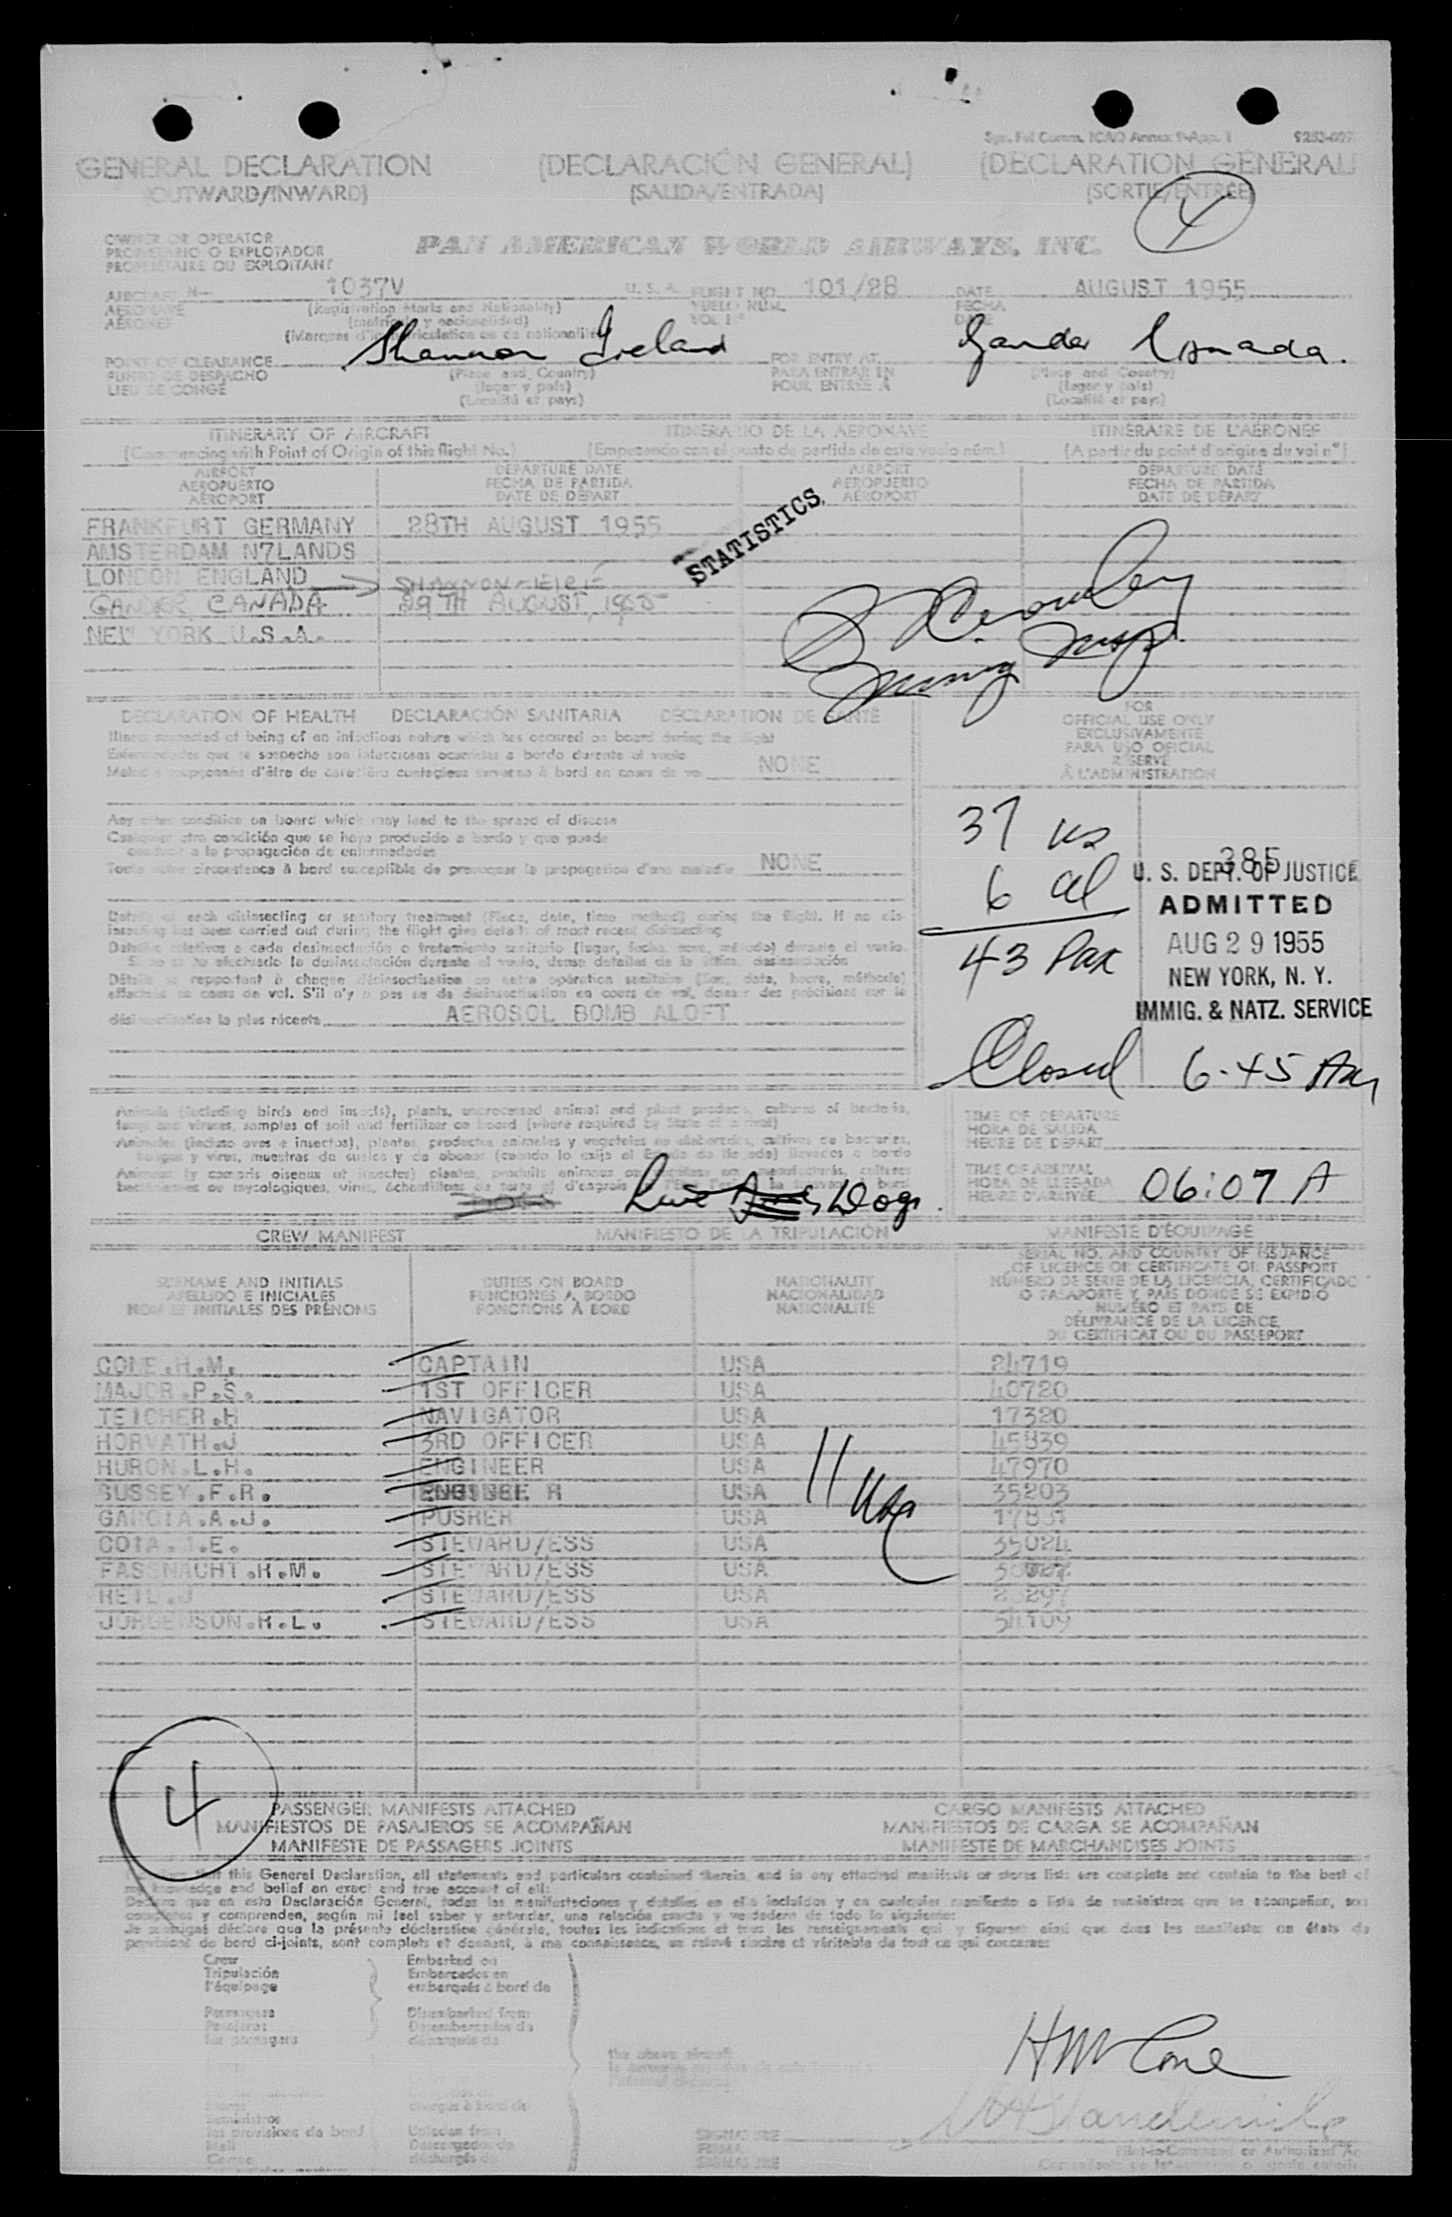 Spn. Fel Comm. ICAO Annex 9-App. 1
GENERAL DECLARATION (DECLARACIÓN GENERAL) (DECLARATION GENERALE
(OUTWARD/INWARD) (SALIDA/ENTRADA) (SORTIE/ENTRÉE)
4
OWNER OR OPERATOR
PROPIETARIO O EXPLOTADOR
PROPRIETAIRE OU EXPLOITANT
PAN AMERICAN WORLD AIRWAYS, INC.
AIRCRAFT N— 1037V U. S. A. FLIGHT NO. 101/28 DATE AUGUST 1955
AERONAVE (Registration Marks and Nationality) VUELO NUM. FECHA
AÉRONEF (matrícula y nacionalidad) VOL N° DATE
(Marques d'immatriculation ou de nationalité)
POINT OF CLEARANCE Shannon Ireland FOR ENTRY AT Gander Canada.
PUNTO DE DESPACHO (Place and Country) PARA ENTRAR EN (Place and Country)
LIEU DE CONGÉ (lugar y país) POUR ENTRÉE A (lugar y país)
(Localité et pays) (Localité et pays)
ITINERARY OF AIRCRAFT ITINERARIO DE LA AERONAVE ITINÉRAIRE DE L'AÉRONEF
(Commencing with Point of Origin of this flight No.) (Empezando con el punto de partida de este vuelo núm.) (A partir du point d'origine du vol n°)
AIRPORT DEPARTURE DATE AIRPORT DEPARTURE DATE
AEROPUERTO FECHA DE PARTIDA AEROPUERTO FECHA DE PARTIDA
AÉROPORT DATE DE DÉPART AÉROPORT DATE DE DÉPART
FRANKFURT GERMANY 28TH AUGUST 1955
STATISTICS
AMSTERDAM N7LANDS
LONDON ENGLAND SHANNON-EIRE
GANDER CANADA 29TH AUGUST, 1955
NEW YORK U.S.A.
Crowley
Immig Insp.
DECLARATION OF HEALTH DECLARACIÓN SANITARIA DÉCLARATION DE SANTÉ
Illness suspected of being of an infectious nature which has occurred on board during the flight
Enfermedades que se sospecha son infecciosas ocurridas a bordo durante el vuelo
Maladie soupçonnée d'être de caractère contagieux survenue à bord en cours de vol NONE
Any other condition on board which may lead to the spread of disease
Cualquier otra condición que se haya producido a bordo y que puede
conducir a la propagación de enfermedades
Toute autre circonstance à bord susceptible de provoquer la propagation d'une maladie NONE
Details of each disinsecting or sanitary treatment (Place, date, time, method) during the flight. If no dis-
insecting has been carried out during the flight give details of most recent disinsecting
Detalles relativos a cada desinsectación o tratamiento sanitario (lugar, fecha, hora, método) durante el vuelo.
Si no se ha efectuado la desinsectación durante el vuelo, dense detalles de la última desinsectación
Détails se rapportant à chaque désinsectisation ou autre opération sanitaire (lieu, date, heure, méthode)
effectuée au cours de vol. S'il n'y a pas eu de désinsectisation en cours de vol, donner des précisions sur la
désinsectisation la plus récente AEROSOL BOMB ALOFT
FOR
OFFICIAL USE ONLY
EXCLUSIVAMENTE
PARA USO OFICIAL
RÉSERVÉ
À L'ADMINISTRATION
37 us
6 al
43 Pax
385
U. S. DEPT. OF JUSTICE
ADMITTED
AUG 29 1955
NEW YORK, N. Y.
IMMIG. & NATZ. SERVICE
Closed 6-45 Am
Animals (including birds and insects), plants, unprocessed animal and plant products, cultures of bacteria,
fungi and viruses, samples of soil and fertilizer on board (where required by State of arrival)
Animales (incluso aves e insectos), plantas, productos animales y vegetales no elaborados, cultivos de bacterias,
hongos y virus, muestras de suelos y de abonos (cuando lo exija el Estado de llegada) llevados a bordo
Live Dogs.
TIME OF DEPARTURE
HORA DE SALIDA
HEURE DE DÉPART
TIME OF ARRIVAL
HORA DE LLEGADA
HEURE D'ARRIVÉE 06:07 A
CREW MANIFEST MANIFIESTO DE LA TRIPULACIÓN MANIFESTE D'ÉQUIPAGE
SURNAME AND INITIALS DUTIES ON BOARD NATIONALITY SERIAL NO. AND COUNTRY OF ISSUANCE
APELLIDO E INICIALES FUNCIONES A BORDO NACIONALIDAD OF LICENCE OR CERTIFICATE OR PASSPORT
NOM ET INITIALES DES PRÉNOMS FONCTIONS À BORD NATIONALITÉ NÚMERO DE SERIE DE LA LICENCIA, CERTIFICADO
O PASAPORTE Y PAIS DONDE SE EXPIDIO
NUMÉRO ET PAYS DE
DÉLIVRANCE DE LA LICENCE,
DU CERTIFICAT OU DU PASSEPORT
CONE.H.M. CAPTAIN USA 24719
MAJOR.P.S. 1ST OFFICER USA 40720
TEICHER.H NAVIGATOR USA 17320
HORVATH.J 3RD OFFICER USA 45839
HURON.L.H. ENGINEER USA 47970
SUSSEY.F.R. USA 35203
GARCIA.A.J. PURSER USA
COTA. .E. STEWARD/ESS USA 35024
FASSNACHT.H.M. STEWARD/ESS USA
STEWARD/ESS USA
JORGENSON.H.L. STEWARD/ESS USA
11 usc
4
PASSENGER MANIFESTS ATTACHED CARGO MANIFESTS ATTACHED
MANIFIESTOS DE PASAJEROS SE ACOMPAÑAN MANIFIESTOS DE CARGA SE ACOMPAÑAN
MANIFESTE DE PASSAGERS JOINTS MANIFESTE DE MARCHANDISES JOINTS
that this General Declaration, all statements and particulars contained therein and in any attached manifests or stores lists are complete and contain to the best of
my knowledge and belief an exact and true account of all:
Declaro que en esta Declaración General, todas las manifestaciones y detalles en ella incluidos y en cualquier manifiesto o lista de suministros que se acompañan, son
completos y comprenden, según mi leal saber y entender, una relación exacta y verdadera de todo lo siguiente:
Je soussigné déclare que la présente déclaration générale, toutes les indications et tous les renseignements qui y figurent ainsi que dans les manifestes ou états de
provisions de bord ci-joints, sont complets et donnent, à ma connaissance, un relevé sincère et véritable de tout ce qui concerne:
Crew Embarked on
Tripulación Embarcados en
l'équipage embarqués à bord de
Passengers Disembarked from
Pasajeros Desembarcados de
les passagers débarqués de
the above aircraft
HM Cone
Suministros
les provisions de bord Unladen from
Mail Descargados de
Correo déchargés de
SIGNATURE
FIRMA
SIGNATURE
Pilot-in-Command or Authorized